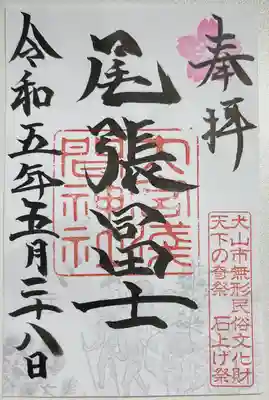 奉拝
犬山市無形民俗文化財
天下の奇祭 石上げ祭
尾張冨士
大宮浅
間神社
令和五年五月二十八日